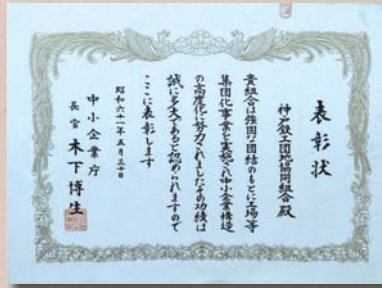 表彰状
神戸鉄工団地協同組合 殿
貴組合は強固な団結のもとに工場等
集団化事業を実施され中小企業構造
の高度化に努力されましたその功績は
誠に多大であると認められますので
ここに表彰します
昭和六十一年五月三十日
中小企業庁
長官 木下博生